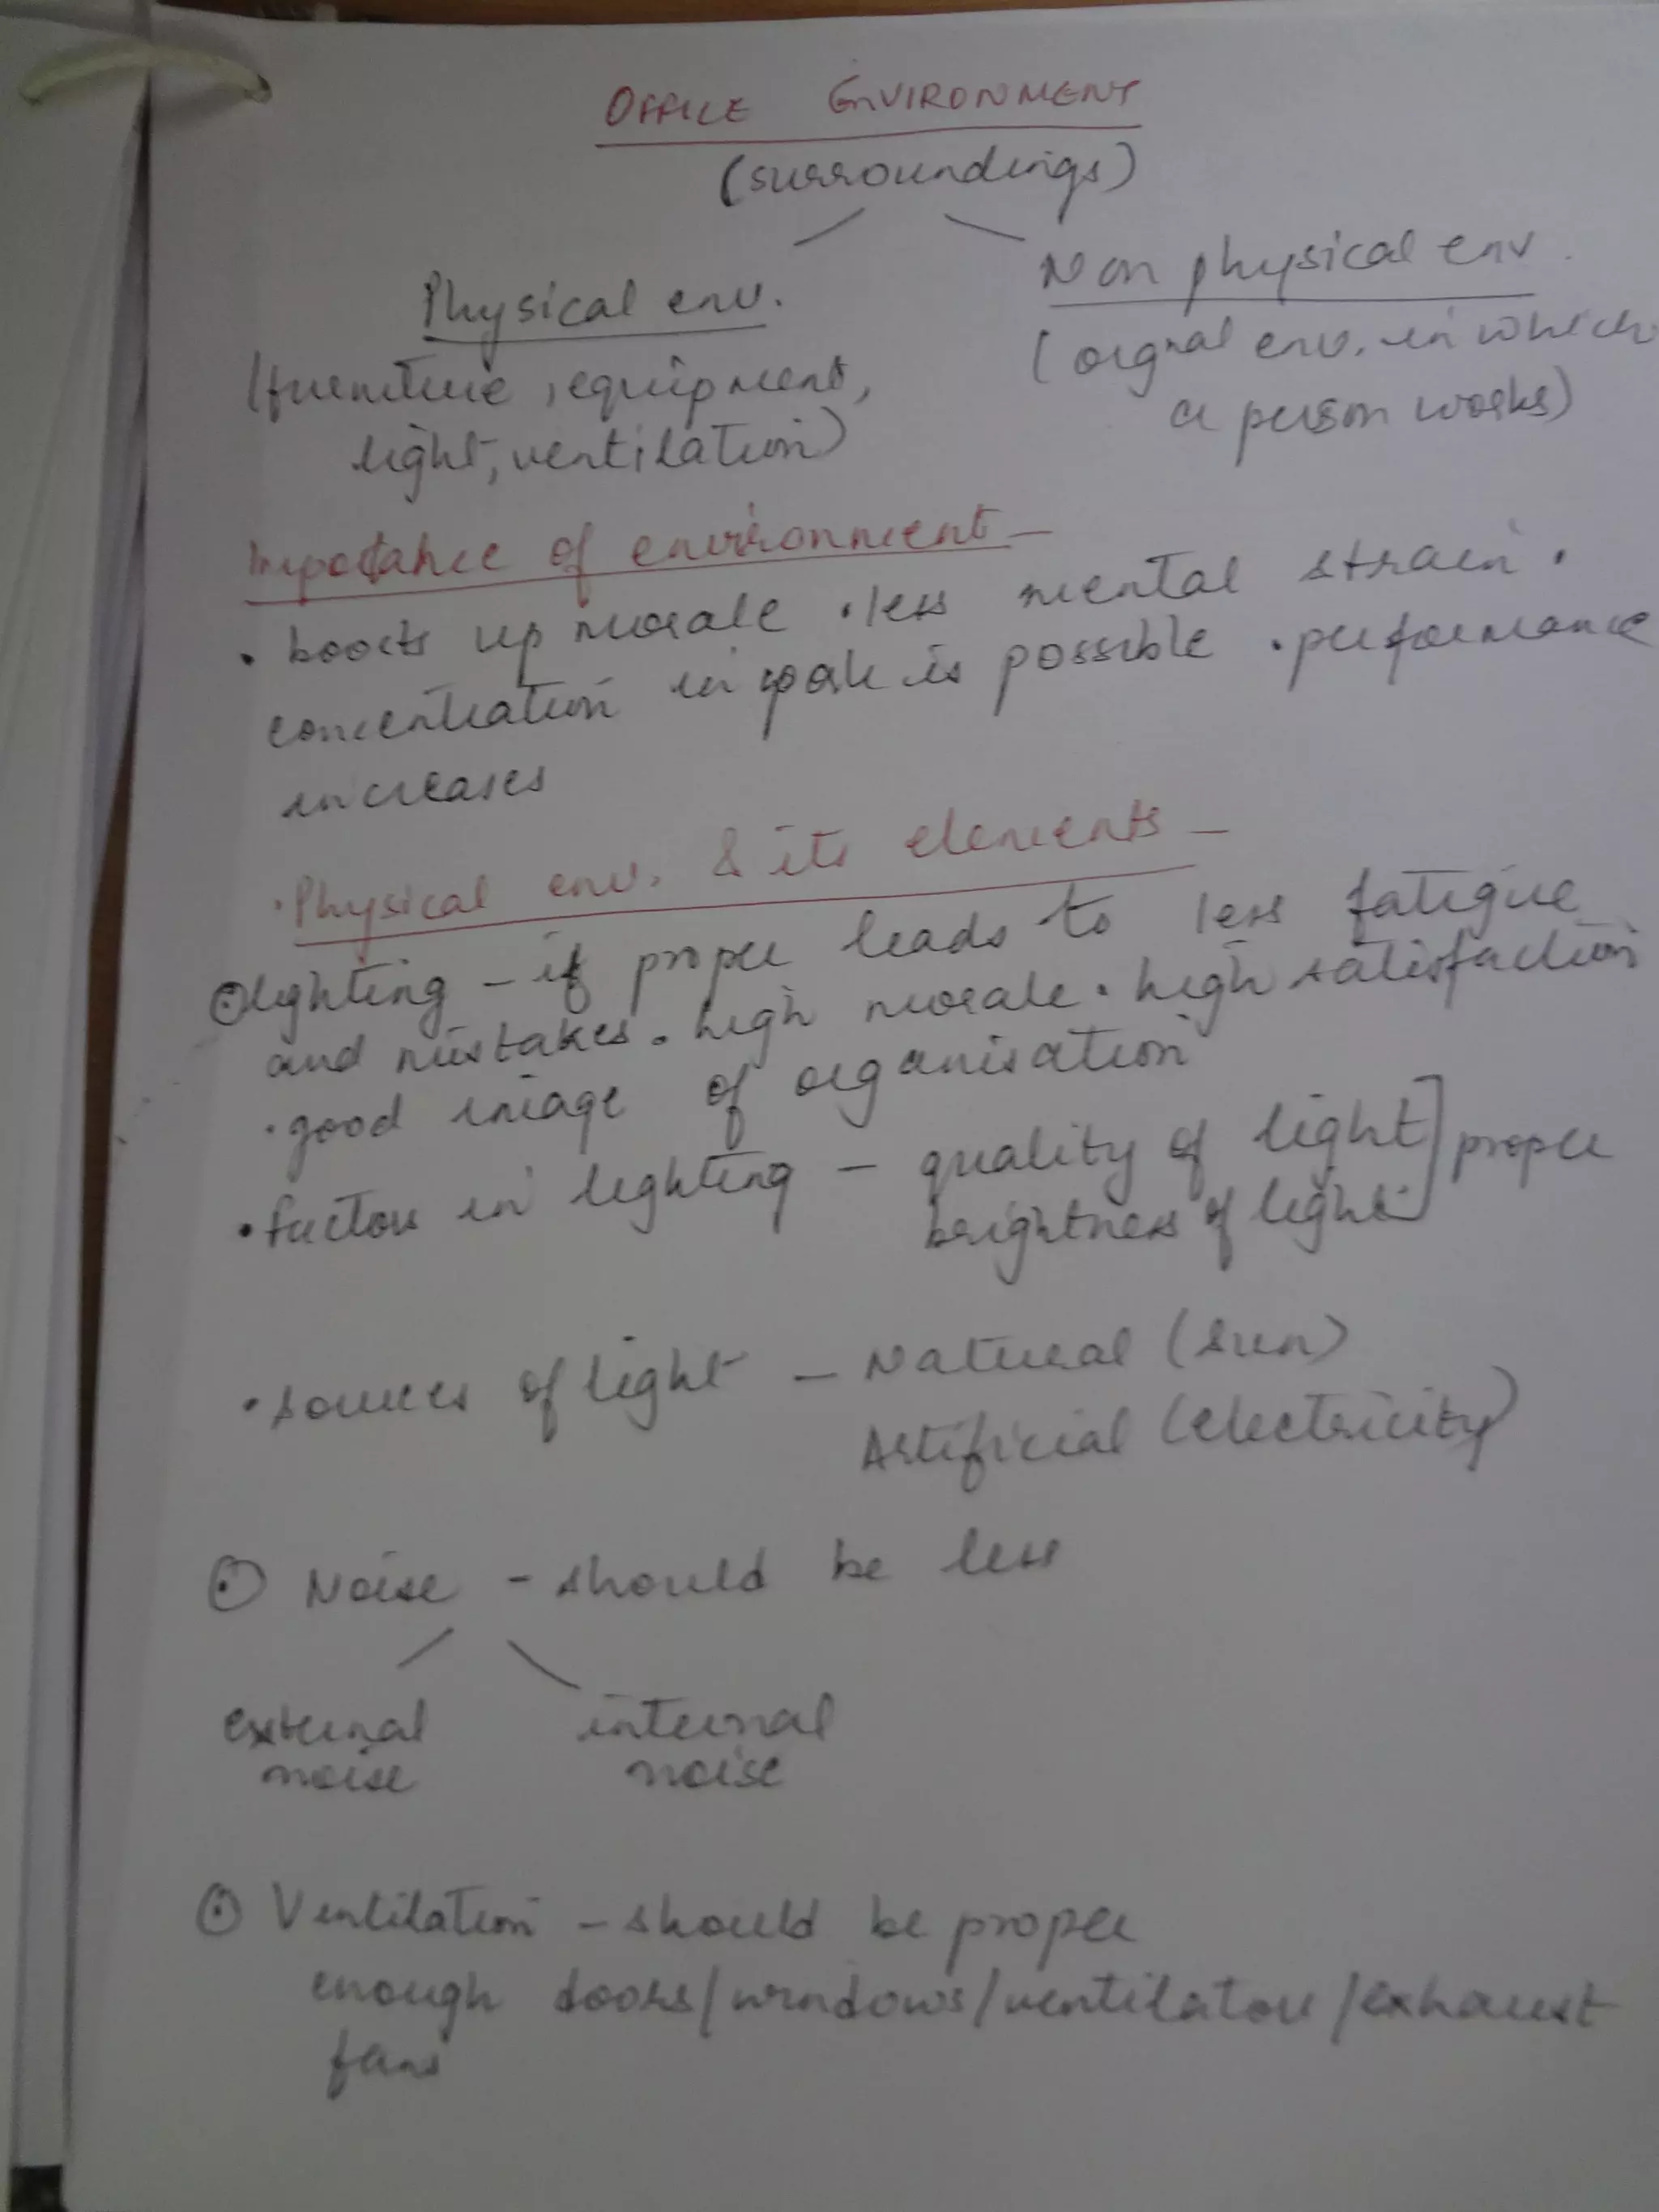 OFFICE ENVIRONMENT
(surroundings)
Physical env.
(furniture, equipment,
light, ventilation)
Non physical env.
(orgnal env. in which
a person works)
Importance of environment –
• boosts up morale • less mental strain •
concentration in work is possible • performance
increases
• Physical env. & its elements –
⊙ lighting – if proper leads to less fatigue
and mistakes • high morale • high satisfaction
• good image of organisation
• factors in lighting – quality of light] proper
brightness of light
• sources of light – Natural (sun)
Artificial (electricity)
⊙ Noise – should be less
external noise
internal noise
⊙ Ventilation – should be proper
enough doors/windows/ventilators/exhaust
fans